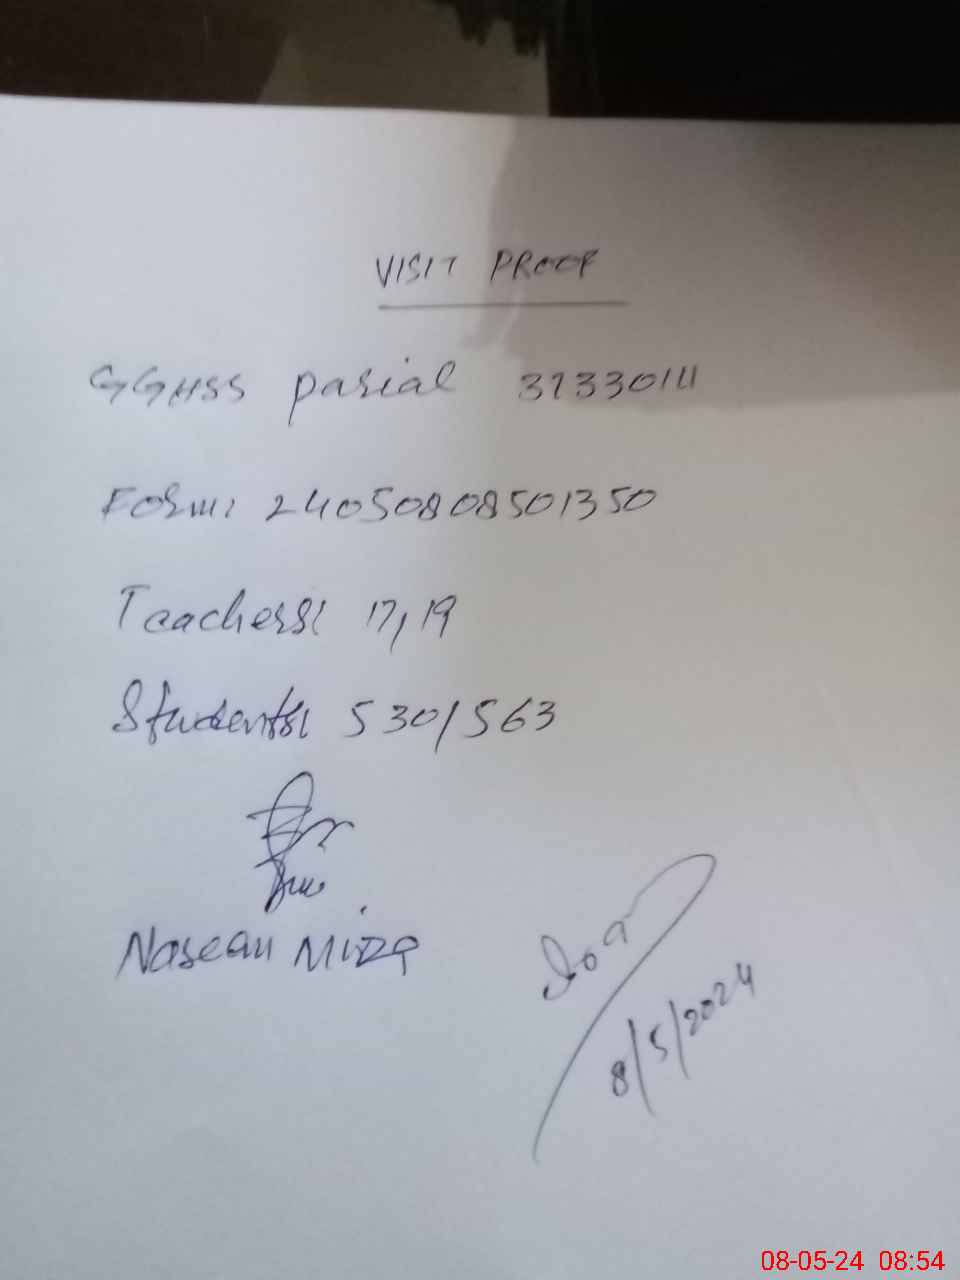 VISIT PROOF
GGHSS parial 37330111
Form: 24050808501350
Teachers: 17, 19
Students: 530/563
Naseem Mirza
8/5/2024
08-05-24 08:54